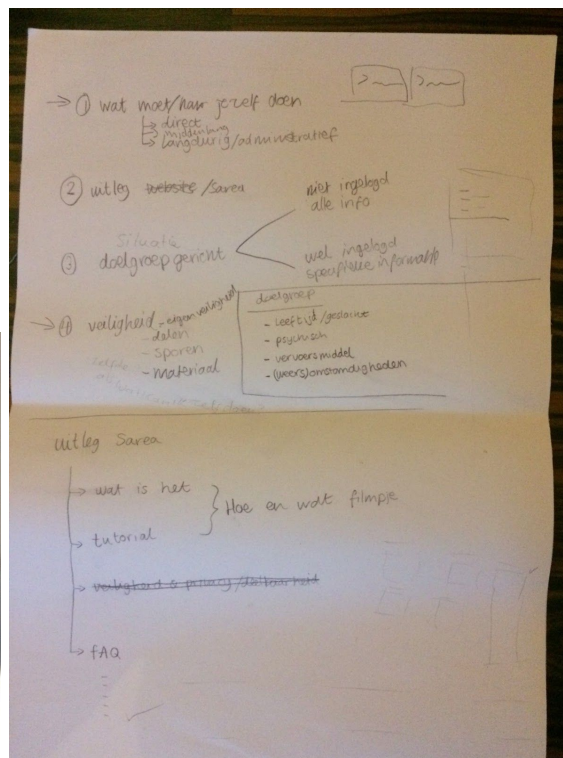 → ① wat moet/kan jezelf doen
→ direct
→ middellang
→ langdurig/administratief
② uitleg website /Sarea
niet ingelogd
alle info
Situatie
③ doelgroep gericht
wel ingelogd
specifieke informatie
→ ④ veiligheid - eigen veiligheid
- delen
- sporen
- materiaal
doelgroep
- leeftijd/geslacht
- psychisch
- vervoersmiddel
- (weers)omstandigheden
uitleg Sarea
→ wat is het
Hoe en wat filmpje
→ tutorial
→ veiligheid & privacy /deelbaarheid
→ fAQ